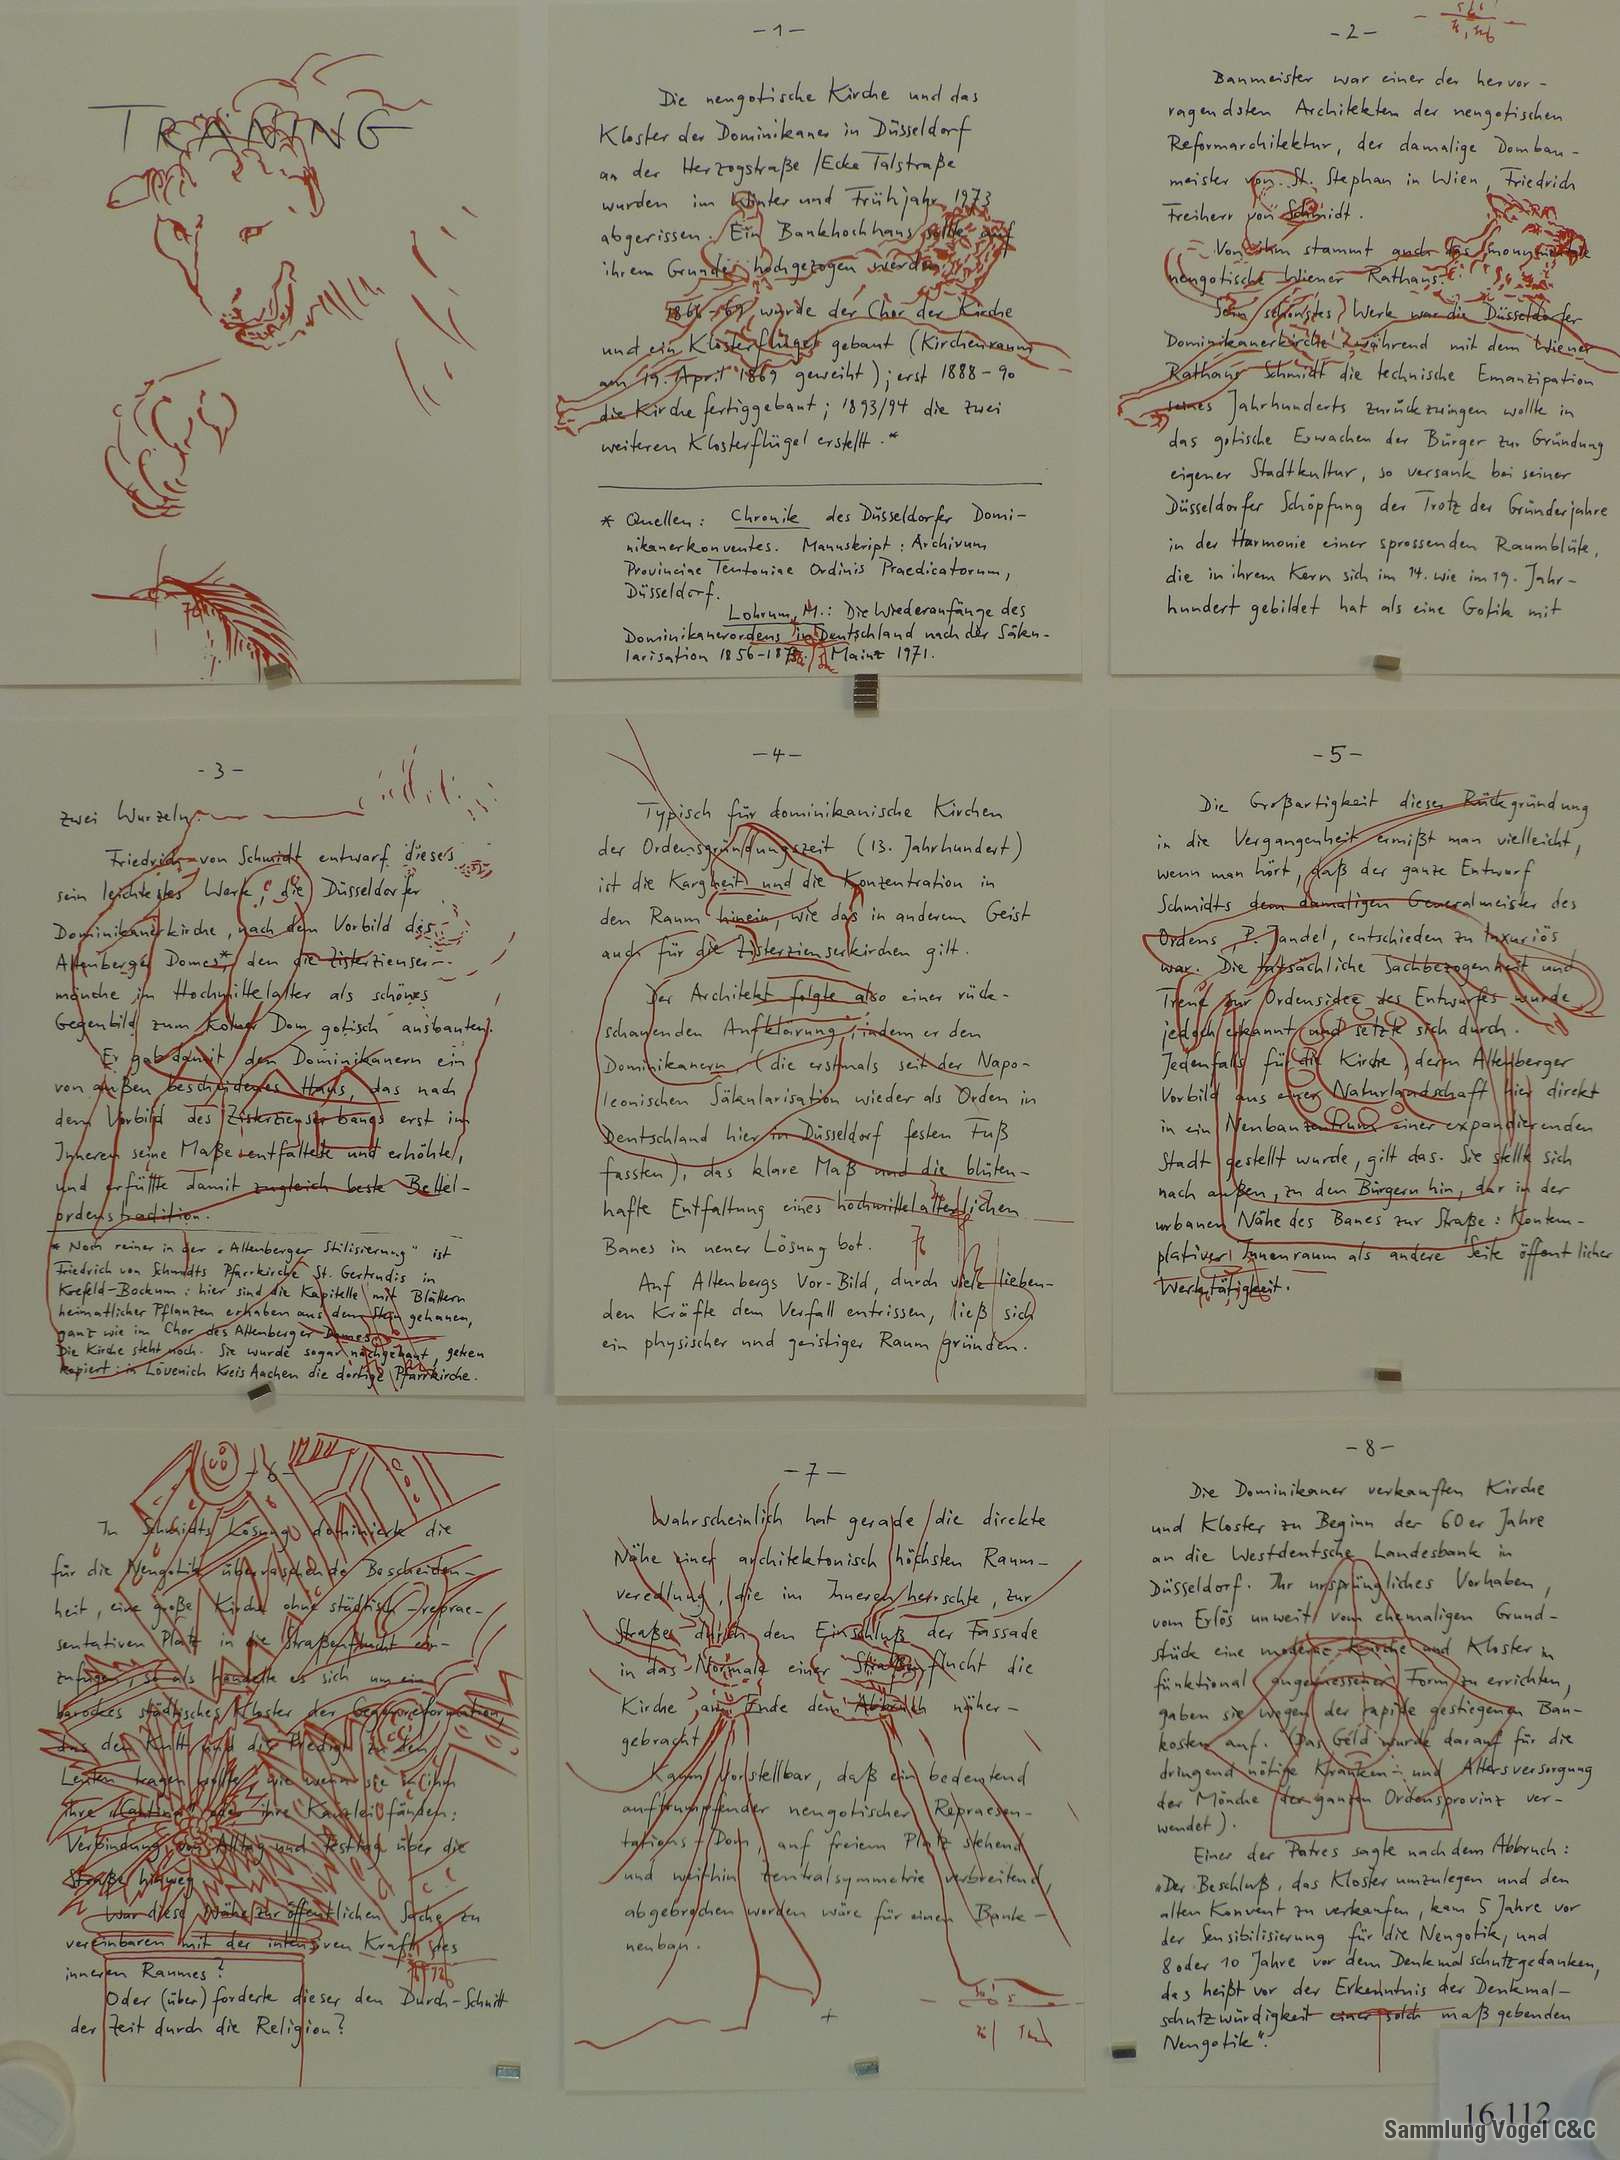 TRANING
-1-
Die neugotische Kirche und das
Kloster der Dominikaner in Düsseldorf
an der Herzogstraße / Ecke Talstraße
wurden im Winter und Frühjahr 1973
abgerissen. Ein Bankhochhaus sollte auf
ihrem Grunde hochgezogen werden.
1866-69 wurde der Chor der Kirche
und ein Klosterflügel gebaut (Kirchenraum
am 19. April 1869 geweiht); erst 1888-90
die Kirche fertiggebaut; 1893/94 die zwei
weiteren Klosterflügel erstellt.*
* Quellen: Chronik des Düsseldorfer Domi-
nikanerkonventes. Manuskript: Archivum
Provinciae Teutoniae Ordinis Praedicatorum,
Düsseldorf.
Lohrum, M.: Die Wiederanfänge des
Dominikanerordens in Deutschland nach der Säku-
larisation 1856-18 Mainz 1971.
-2-
Baumeister war einer der hervor-
ragendsten Architekten der neugotischen
Reformarchitektur, der damalige Dombau-
meister von St. Stephan in Wien, Friedrich
Freiherr von Schmidt.
Von ihm stammt auch das monumentale
neugotische Wiener Rathaus.
Sein schönstes Werk war die Düsseldorfer
Dominikanerkirche: während mit dem Wiener
Rathaus Schmidt die technische Emanzipation
seines Jahrhunderts zurückzwingen wollte in
das gotische Erwachen der Bürger zur Gründung
eigener Stadtkultur, so versank bei seiner
Düsseldorfer Schöpfung der Trotz der Gründerjahre
in der Harmonie einer sprossenden Raumblüte,
die in ihrem Kern sich im 14. wie im 19. Jahr-
hundert gebildet hat als eine Gotik mit
-3-
zwei Wurzeln.
Friedrich von Schmidt entwarf dieses
sein leichtestes Werk, die Düsseldorfer
Dominikanerkirche, nach dem Vorbild des
Altenberger Domes*, den die Zisterzienser-
mönche im Hochmittelalter als schönes
Gegenbild zum Kölner Dom gotisch ausbauten.
Er gab damit den Dominikanern ein
von außen bescheidenes Haus, das nach
dem Vorbild des Zisterzienserbaus erst im
Inneren seine Maße entfaltete und erhöhte,
und erfüllte damit zugleich beste Bettel-
ordenstradition.
* Noch reiner in der "Altenberger Stilisierung" ist
Friedrich von Schmidts Pfarrkirche St. Gertrudis in
Krefeld-Bockum: hier sind die Kapitelle mit Blättern
heimatlicher Pflanzen erhaben aus dem Stein gehauen,
ganz wie im Chor des Altenberger Domes.
Die Kirche steht noch. Sie wurde sogar nachgebaut, getreu
kopiert: in Lövenich Kreis Aachen die dortige Pfarrkirche.
-4-
Typisch für dominikanische Kirchen
der Ordensgründungszeit (13. Jahrhundert)
ist die Kargheit und die Konzentration in
den Raum hinein, wie das in anderem Geist
auch für die Zisterzienserkirchen gilt.
Der Architekt folgte also einer rück-
schauenden Aufklärung, indem er den
Dominikanern (die erstmals seit der Napo-
leonischen Säkularisation wieder als Orden in
Deutschland hier in Düsseldorf festen Fuß
fassten), das klare Maß und die blüten-
hafte Entfaltung eines hochmittelalterlichen
Baues in neuer Lösung bot.
Auf Altenbergs Vor-Bild, durch viele lieben-
den Kräfte dem Verfall entrissen, ließ sich
ein physischer und geistiger Raum gründen.
-5-
Die Großartigkeit dieser Rückgründung
in die Vergangenheit ermißt man vielleicht,
wenn man hört, daß der ganze Entwurf
Schmidts dem damaligen Generalmeister des
Ordens, P. Jandel, entschieden zu luxuriös
war. Die tatsächliche Sachbezogenheit und
Treue zur Ordensidee des Entwurfes wurde
jedoch erkannt und setzte sich durch.
Jedenfalls für die Kirche, deren Altenberger
Vorbild aus einer Naturlandschaft hier direkt
in ein Neubauzentrum einer expandierenden
Stadt gestellt wurde, gilt das. Sie stellte sich
nach außen, zu den Bürgern hin, dar in der
urbanen Nähe des Baues zur Straße: Kontem-
plativer Innenraum als andere Seite öffentlicher
Werktätigkeit.
-6-
In Schmidts Lösung dominierte die
für die Neugotik überraschende Bescheiden-
heit, eine große Kirche ohne städtisch-reprae-
sentativen Platz in die Straßenflucht ein-
zufügen, so als handelte es sich um ein
barockes städtisches Kloster der Gegenreformation,
das den Kult und die Predigt zu den
Leuten tragen wollte, wie wenn sie in ihm
ihre "Cantina" oder ihre Kanzlei fänden:
Verbindung von Alltag und Festtag über die
Straße hinweg.
War diese Nähe zur öffentlichen Sache zu
vereinbaren mit der intensiven Kraft des
inneren Raumes?
Oder (über)forderte dieser den Durch-Schnitt
der Zeit durch die Religion?
-7-
Wahrscheinlich hat gerade die direkte
Nähe einer architektonisch höchsten Raum-
veredlung, die im Inneren herrschte, zur
Straße durch den Einschluß der Fassade
in das Normale einer Straßenflucht die
Kirche am Ende dem Abbruch näher-
gebracht.
Kaum vorstellbar, daß ein bedeutend
auftrumpfender neugotischer Repraesen-
tations-Dom, auf freiem Platz stehend
und weithin Zentralsymmetrie verbreitend,
abgebrochen worden wäre für einen Bank-
neubau.
-8-
Die Dominikaner verkauften Kirche
und Kloster zu Beginn der 60er Jahre
an die Westdeutsche Landesbank in
Düsseldorf. Ihr ursprüngliches Vorhaben,
vom Erlös unweit vom ehemaligen Grund-
stück eine moderne Kirche und Kloster in
funktional angemessener Form zu errichten,
gaben sie wegen der rapide gestiegenen Bau-
kosten auf. (Das Geld wurde darauf für die
dringend nötige Kranken- und Altersversorgung
der Mönche der ganzen Ordensprovinz ver-
wendet).
Einer der Patres sagte nach dem Abbruch:
"Der Beschluß, das Kloster umzulegen und den
alten Konvent zu verkaufen, kam 5 Jahre vor
der Sensibilisierung für die Neugotik, und
8 oder 10 Jahre vor dem Denkmalschutzgedanken,
das heißt vor der Erkenntnis der Denkmal-
schutzwürdigkeit einer solch maßgebenden
Neugotik".
16.112
Sammlung Vogel C&C